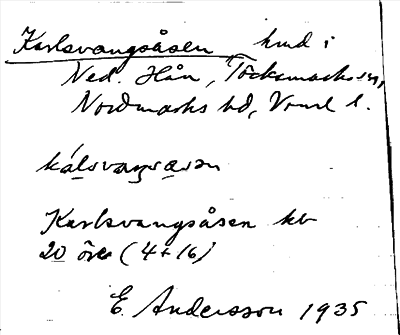 Karlsvangsåsen, hmd i
Ned. Hån, Töcksmarks sn,
Nordmarks hd, Vrml l.
kálsvaŋsåsən
Karlsvangsåsen kb
20 öre (4+16)
E. Andersson 1935